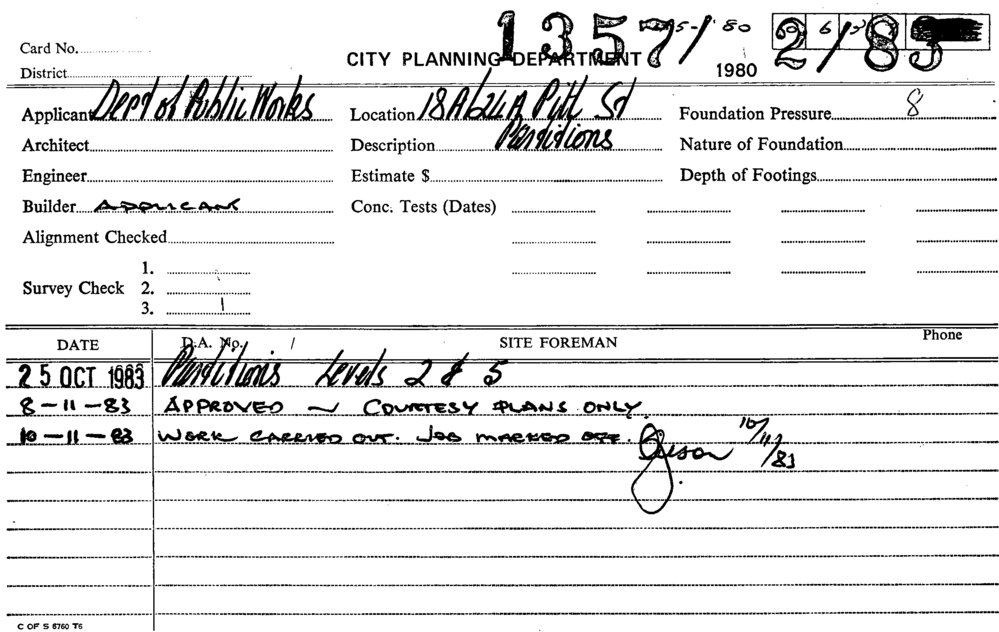 1357 5-/80 2/83
Card No.
CITY PLANNING DEPARTMENT
District
1980
Applicant Dept of Public Works Location 18A to 24A Pitt St Foundation Pressure 8
Architect Description Partitions Nature of Foundation
Engineer Estimate $ Depth of Footings
Builder APPLICANT Conc. Tests (Dates)
Alignment Checked
1.
Survey Check 2.
3.
DATE D.A. No. / SITE FOREMAN Phone
25 OCT 1983 Partitions Levels 2 & 5
8-11-83 APPROVED ~ COURTESY PLANS ONLY.
10-11-83 WORK CARRIED OUT. JOB MARKED OFF. 10/11/83
C OF S 6760 T6